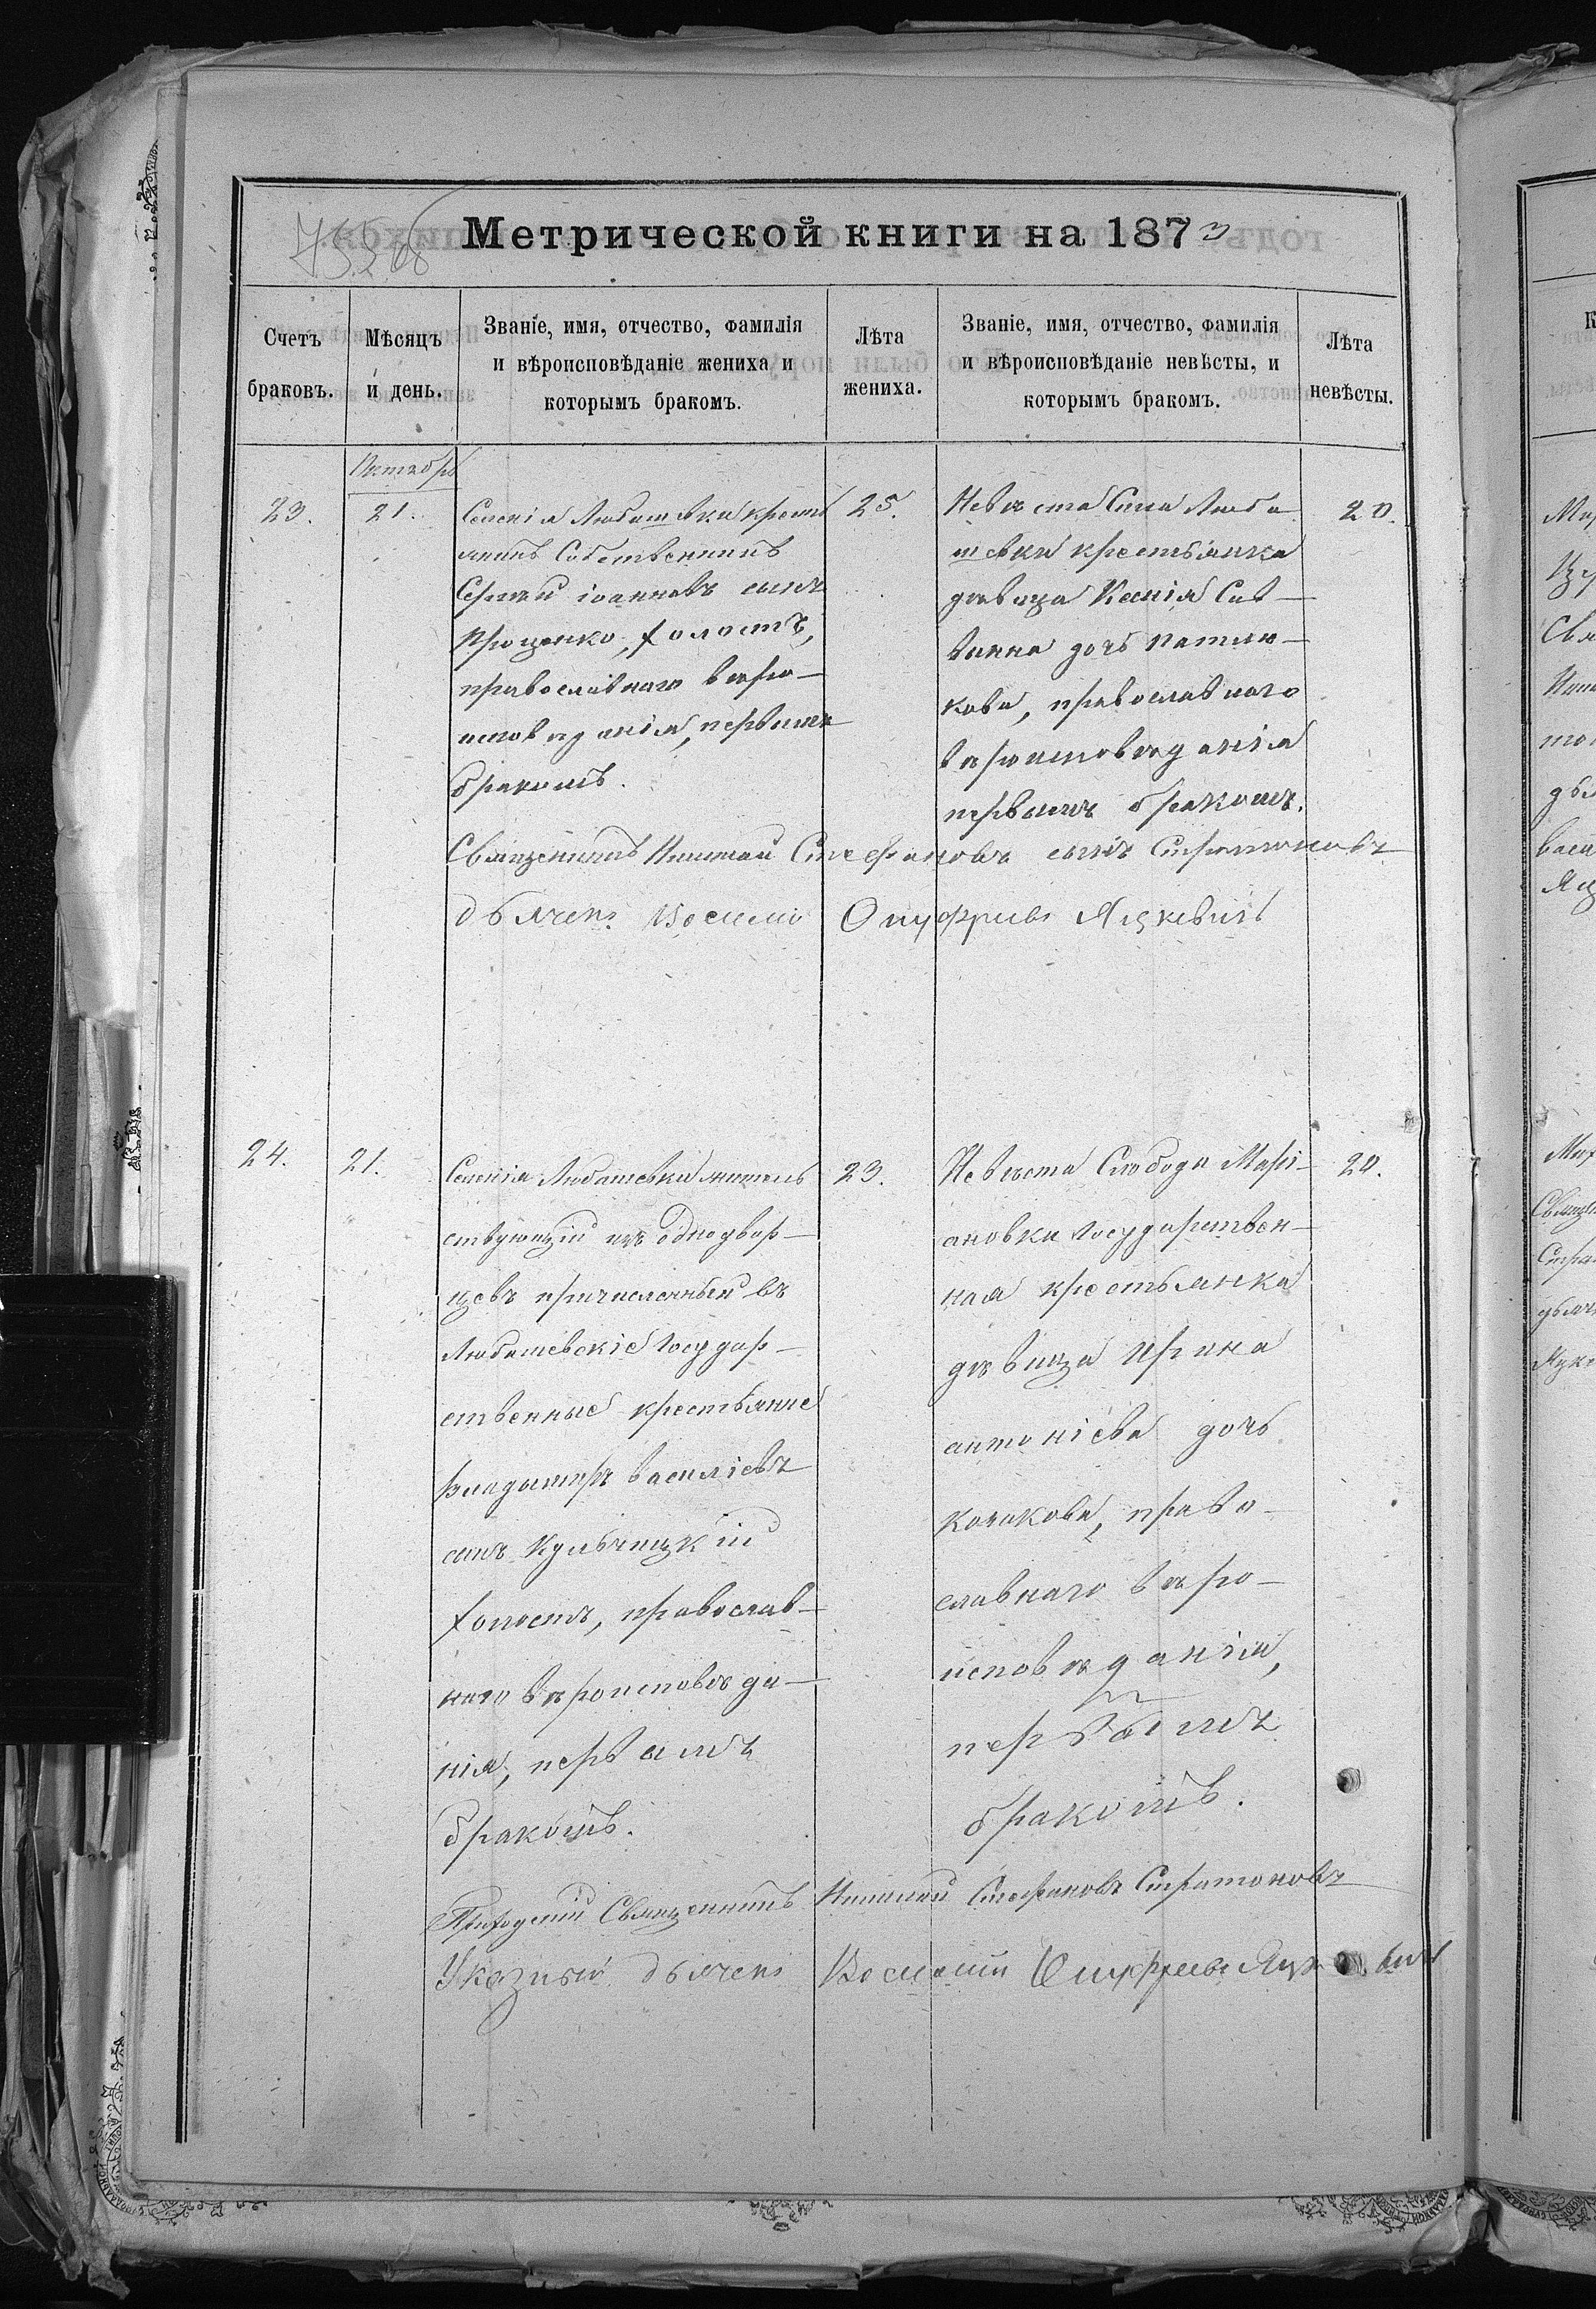 Метрической книги на 1873
Счетъ браковъ.
Мѣсяцъ и день.
Званіе, имя, отчество, фамилія
и вѣроисповѣданіе жениха и
которымъ бракомъ.
Лѣта жениха.
Званіе, имя, отчество, фамилія
и вѣроисповѣданіе невѣсты, и
которымъ бракомъ.
Лѣта невѣсты.
23.
21.
Селенія Любашевки кресть
янинъ Собственникъ
Сергѣй іоанновъ сынъ
Проценко, холостъ,
православнаго вѣро-
исповѣданія, первымъ
бракомъ.
25.
Невѣста Села Люба
шевки крестьянка
дѣвица Ксенія Сав-
вина дочь
кова, православнаго
вѣроисповѣданія
первымъ бракомъ.
20.
Священникъ Николай Стефановъ сынъ Стратоновъ
дьячекъ Косьма Онуфріевъ Яцкевичъ
24.
21.
Селенія Любашевки житель
ствующій изъ однодвор-
цевъ причисленный въ
Любашевскіе Государ-
ственные крестьяне
Владимиръ василіевъ
сынъ Кульчицкій
холостъ, православ-
наго вѣроисповѣда-
нія, первымъ
бракомъ.
23.
Невѣста Слободы Марі-
ановки Государствен-
ная крестьянка
дѣвица Ирина
антоніева дочь
Казакова, право-
славнаго вѣро-
исповѣданія,
первымъ
бракомъ.
20.
Приходскій Священникъ Николай Стефановъ Стратоновъ
Указный дьячекъ Косьма Онуфріевъ